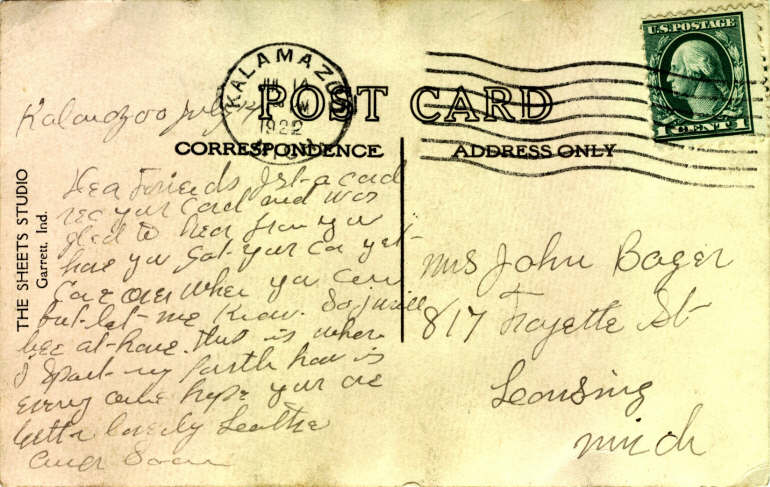 U.S. POSTAGE
1 CENT 1
KALAMAZOO
JUL 14
1922
POST CARD
CORRESPONDENCE
ADDRESS ONLY
THE SHEETS STUDIO
Garrett, Ind.
Kalamazoo July
Dea Friends Just a card
rec your card and was
glad to hear from you
have you got your car yet
Come over when you can
but let me know. So I will
bee at home. this is where
I Spent my fourth how is
every one hope your are
lovely
soon
Mrs John Bager
817 Fayette St
Leansing
Mich